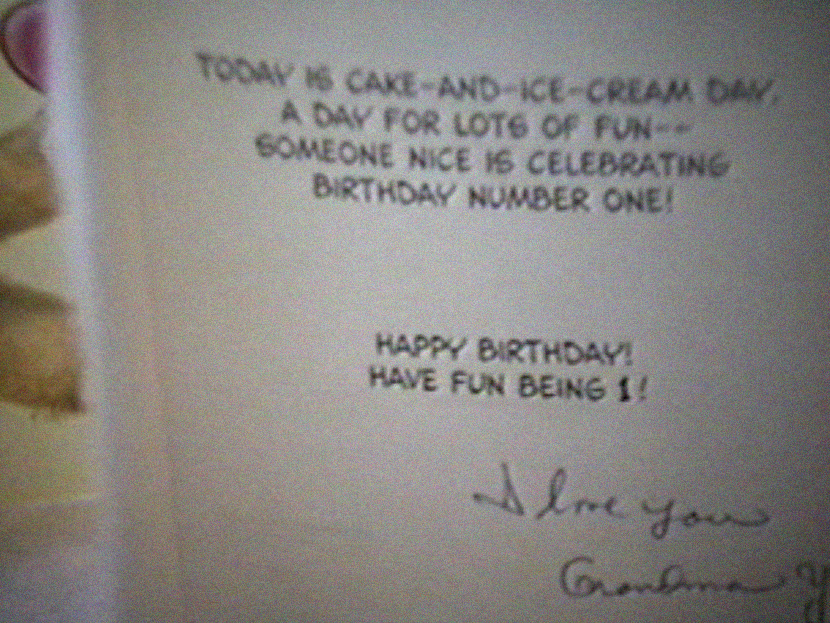 TODAY IS CAKE-AND-ICE-CREAM DAY,
A DAY FOR LOTS OF FUN--
SOMEONE NICE IS CELEBRATING
BIRTHDAY NUMBER ONE!
HAPPY BIRTHDAY!
HAVE FUN BEING 1!
I love you
Grandma Y